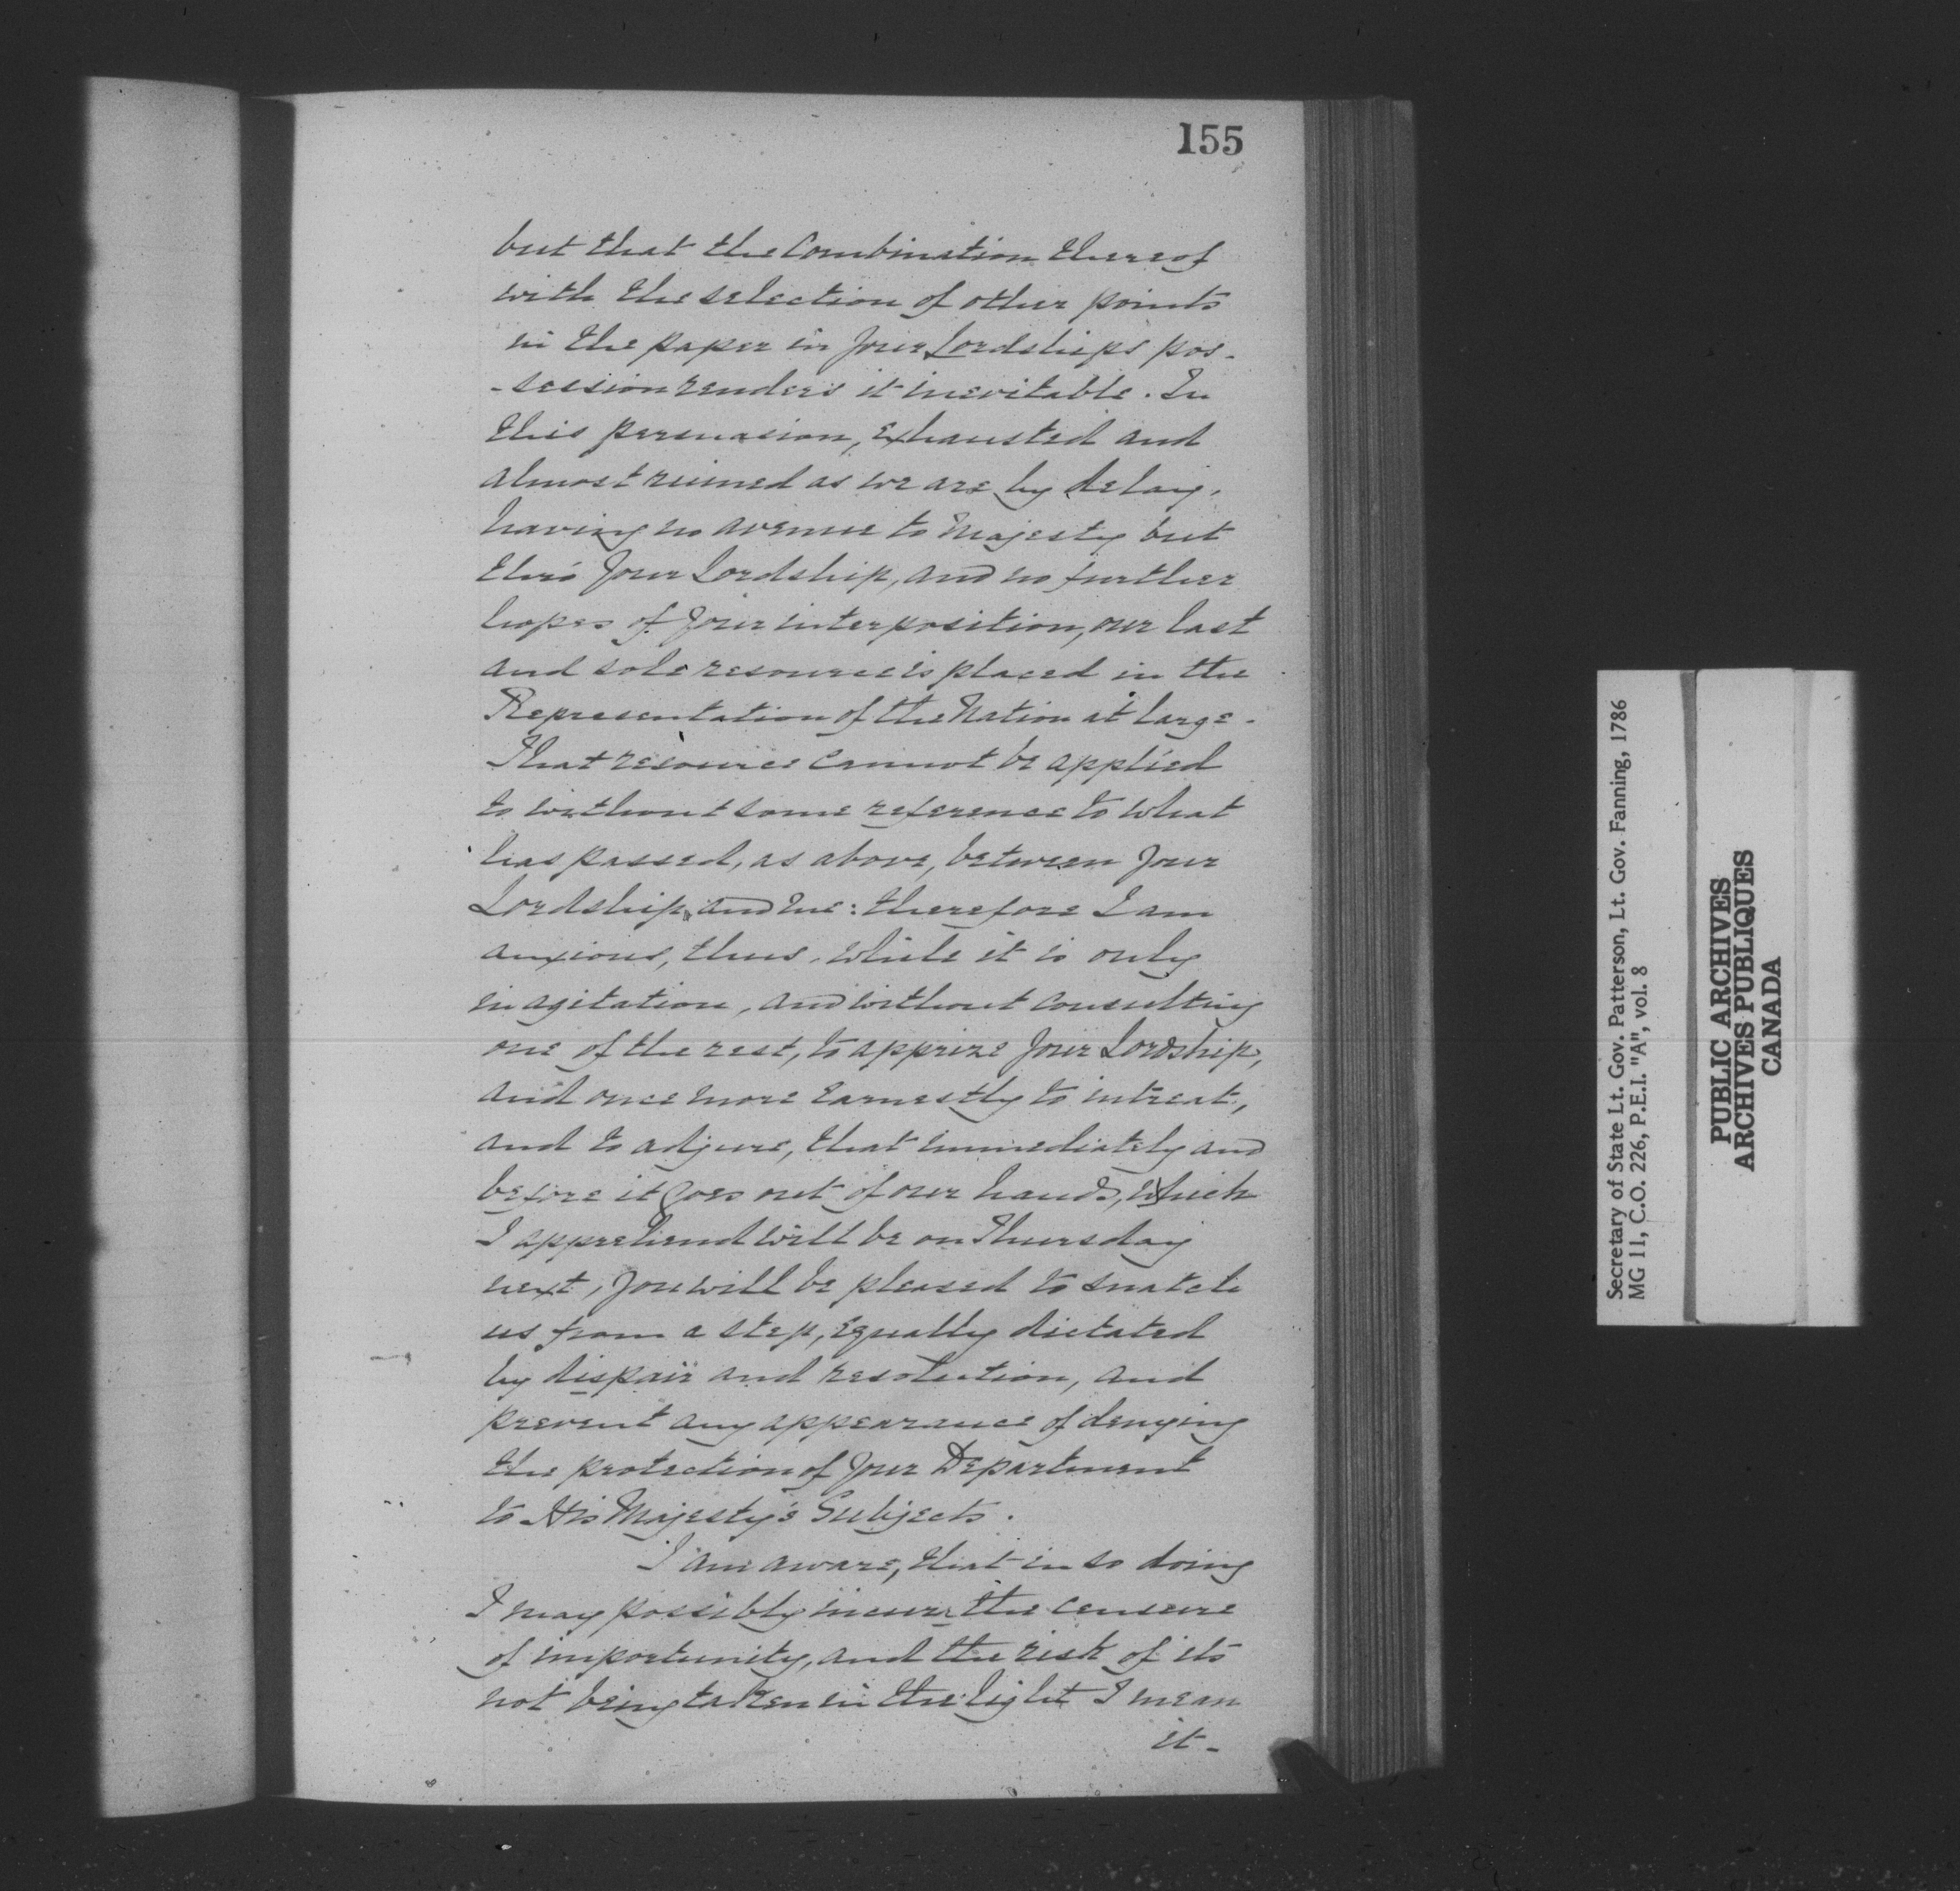 155
but that the Combination thereof
with the selection of other points
in the paper in Your Lordships pos-
-session renders it inevitable. In
this persuasion, exhausted and
almost ruined as we are by delay,
having no avenue to Majesty but
thro' Your Lordship, and no further
hopes of Your interposition, our last
and sole resource is placed in the
Representation of the Nation at large.
That resource cannot be applied
to without some reference to what
has passed, as above, between Your
Lordship and me: therefore I am
anxious, thus, while it is only
in agitation, and without consulting
one of the rest, to apprize Your Lordship,
and once more earnestly to intreat,
and to adjure, that immediately and
before it goes out of our hands, which
I apprehend will be on Thursday
next, You will be pleased to snatch
us from a step, equally dictated
by dispair and resolution, and
prevent any appearance of denying
the protection of Your Department
to His Majesty's Subjects.
I am aware, that in so doing
I may possibly incur the censure
of importunity, and the risk of its
not being taken in the light I mean
it-
Secretary of State Lt. Gov. Patterson, Lt. Gov. Fanning, 1786
MG 11, C.O. 226, P.E.I. "A", vol. 8
PUBLIC ARCHIVES
ARCHIVES PUBLIQUES
CANADA